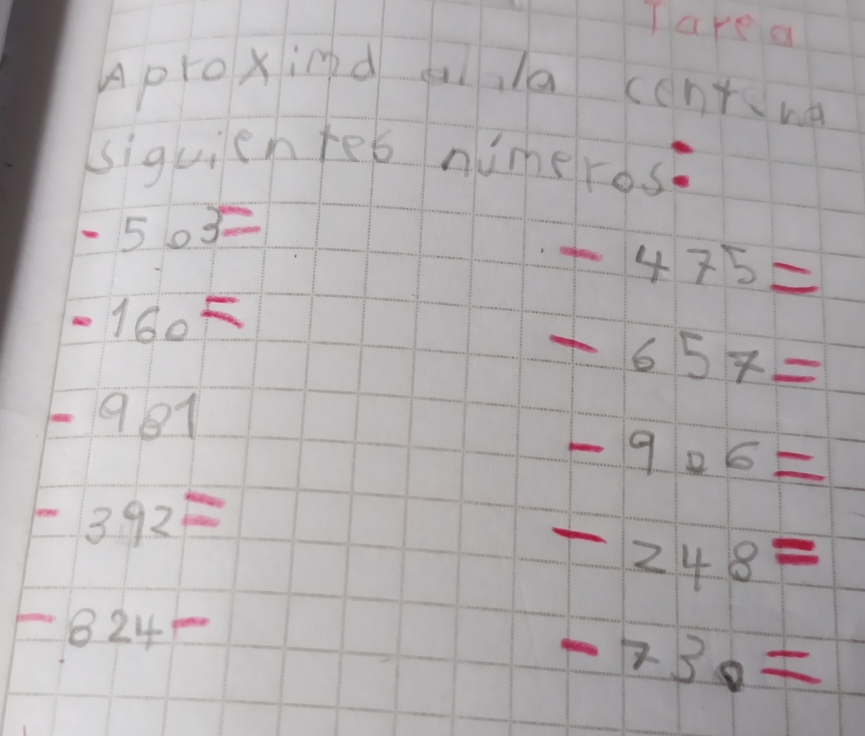 Tarea
Aproxima a la centena
siguientes números:
- 503= - 475=
- 160= - 657=
- 981 - 906=
- 392= - 248=
- 824- - 730=